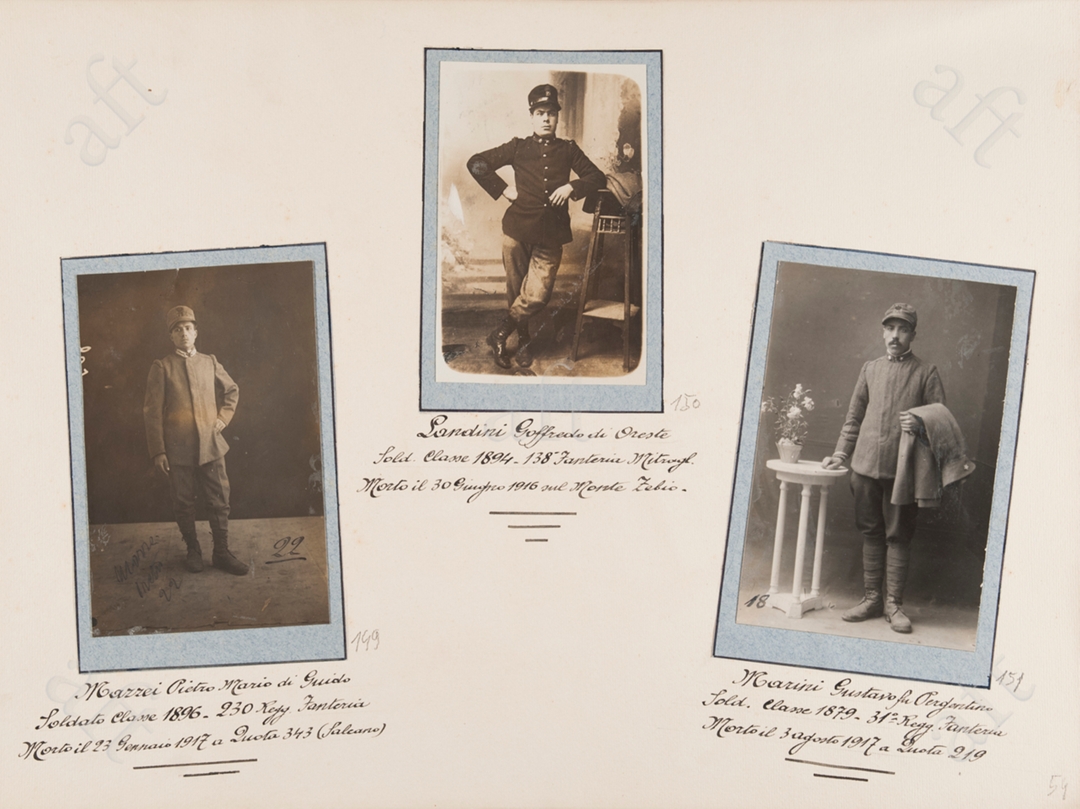 aft
aft
150
Landini Goffredo di Oreste
Sold. Classe 1894 - 138° Fanteria Mitragl.
Morto il 30 Giugno 1916 sul Monte Zebio -
22
149
Mazzei Pietro Mario di Guido
Soldato Classe 1896 - 230 Regg. Fanteria
Morto il 23 Gennaio 1917 a Quota 343 (Salcano)
18
151
Marini Gustavo fu
Sold. Classe 1879 - 31° Regg. Fanteria
Morto il 3 agosto 1917 a Quota 219
54